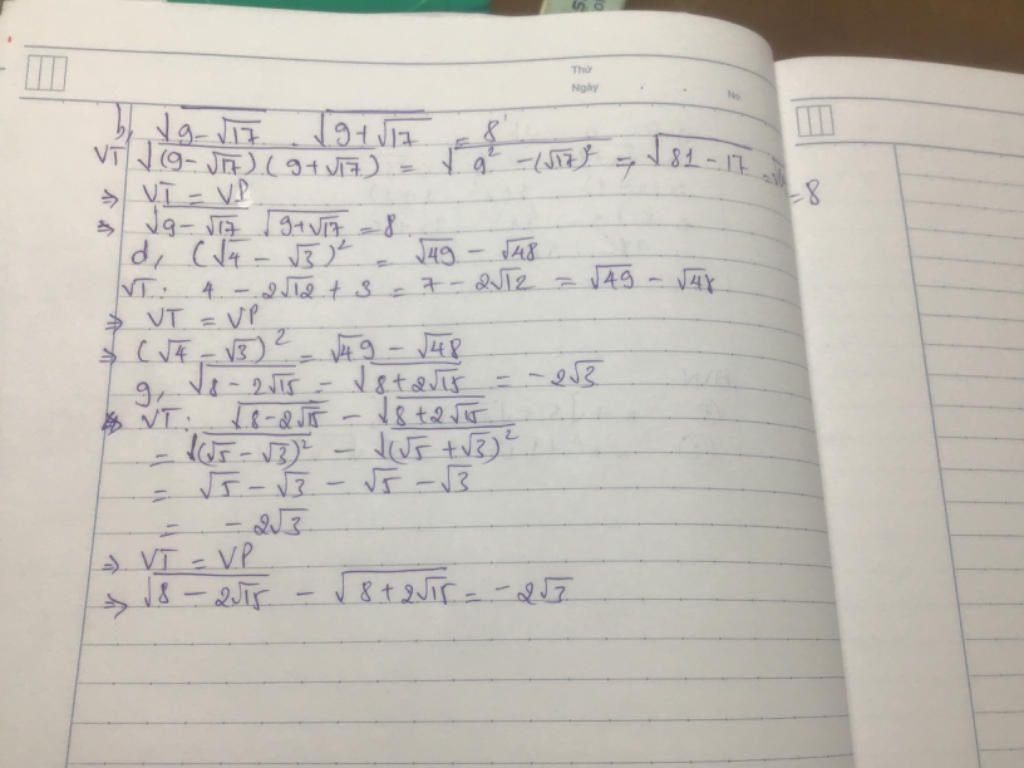 Thứ
Ngày
No.
b, √(9-√17) . √(9+√17) = 8
VT √((9-√17).(9+√17)) = √(9² -(√17)²) = √(81-17) =
=8
⇒ VT = VP
⇒ √(9-√17) √(9+√17) = 8
d, (√4 - √3)² = √49 - √48
VT: 4 - 2√12 + 3 = 7 - 2√12 = √49 - √48
⇒ VT = VP
⇒ (√4 - √3)² = √49 - √48
g, √(8-2√15) - √(8+2√15) = -2√3
VT: √(8-2√15) - √(8+2√15)
= √((√5-√3)²) - √((√5+√3)²)
= √5 - √3 - √5 - √3
= -2√3
⇒ VT = VP
⇒ √(8-2√15) - √(8+2√15) = -2√3